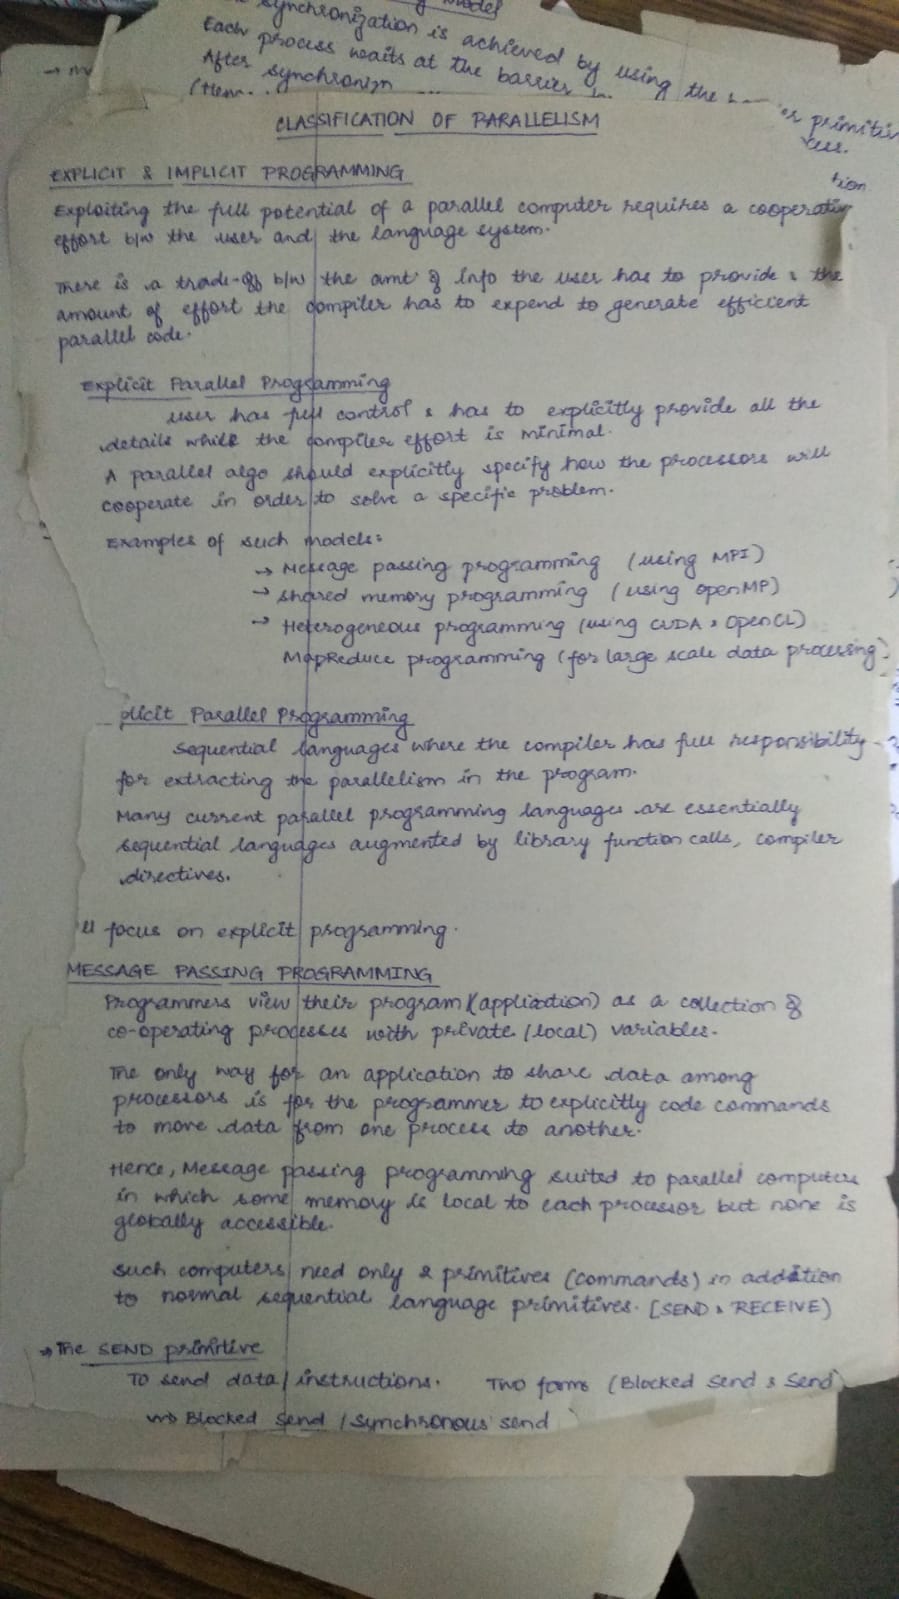 Model
synchronization is achieved by using the
Each process waits at the barrier
After synchronizn
or primitiv
tion
CLASSIFICATION OF PARALLELISM
EXPLICIT & IMPLICIT PROGRAMMING
Exploiting the full potential of a parallel computer requires a cooperativ
effort b/w the user and the language system.
There is a trade-off b/w the amt of info the user has to provide & the
amount of effort the compiler has to expend to generate efficient
parallel code.
Explicit Parallel Programming
User has full control & has to explicitly provide all the
details while the compiler effort is minimal.
A parallel algo should explicitly specify how the processors will
cooperate in order to solve a specific problem.
Examples of such models:
→ Message passing programming (using MPI)
→ Shared memory programming (using OpenMP)
→ Heterogeneous programming (using CUDA & OpenCL)
MapReduce programming (for large scale data processing)
plicit Parallel Programming
Sequential languages where the compiler has full responsibility
for extracting the parallelism in the program.
Many current parallel programming languages are essentially
sequential languages augmented by library function calls, compiler
directives.
ll focus on explicit programming.
MESSAGE PASSING PROGRAMMING
Programmers view their program (application) as a collection of
co-operating processes with private (local) variables.
The only way for an application to share data among
processors is for the programmer to explicitly code commands
to move data from one process to another.
Hence, Message passing programming suited to parallel computers
in which some memory is local to each processor but none is
globally accessible.
Such computers need only 2 primitives (commands) in addition
to normal sequential language primitives. [SEND & RECEIVE)
→ The SEND primitive
To send data/instructions. Two forms (Blocked Send & Send)
→ Blocked Send / Synchronous send